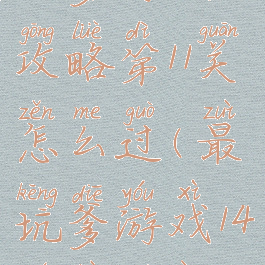 gōng lüè dì guān
攻略第11关
zěn me guò zuì
怎么过(最
kēng diē yóu xì
坑爹游戏14